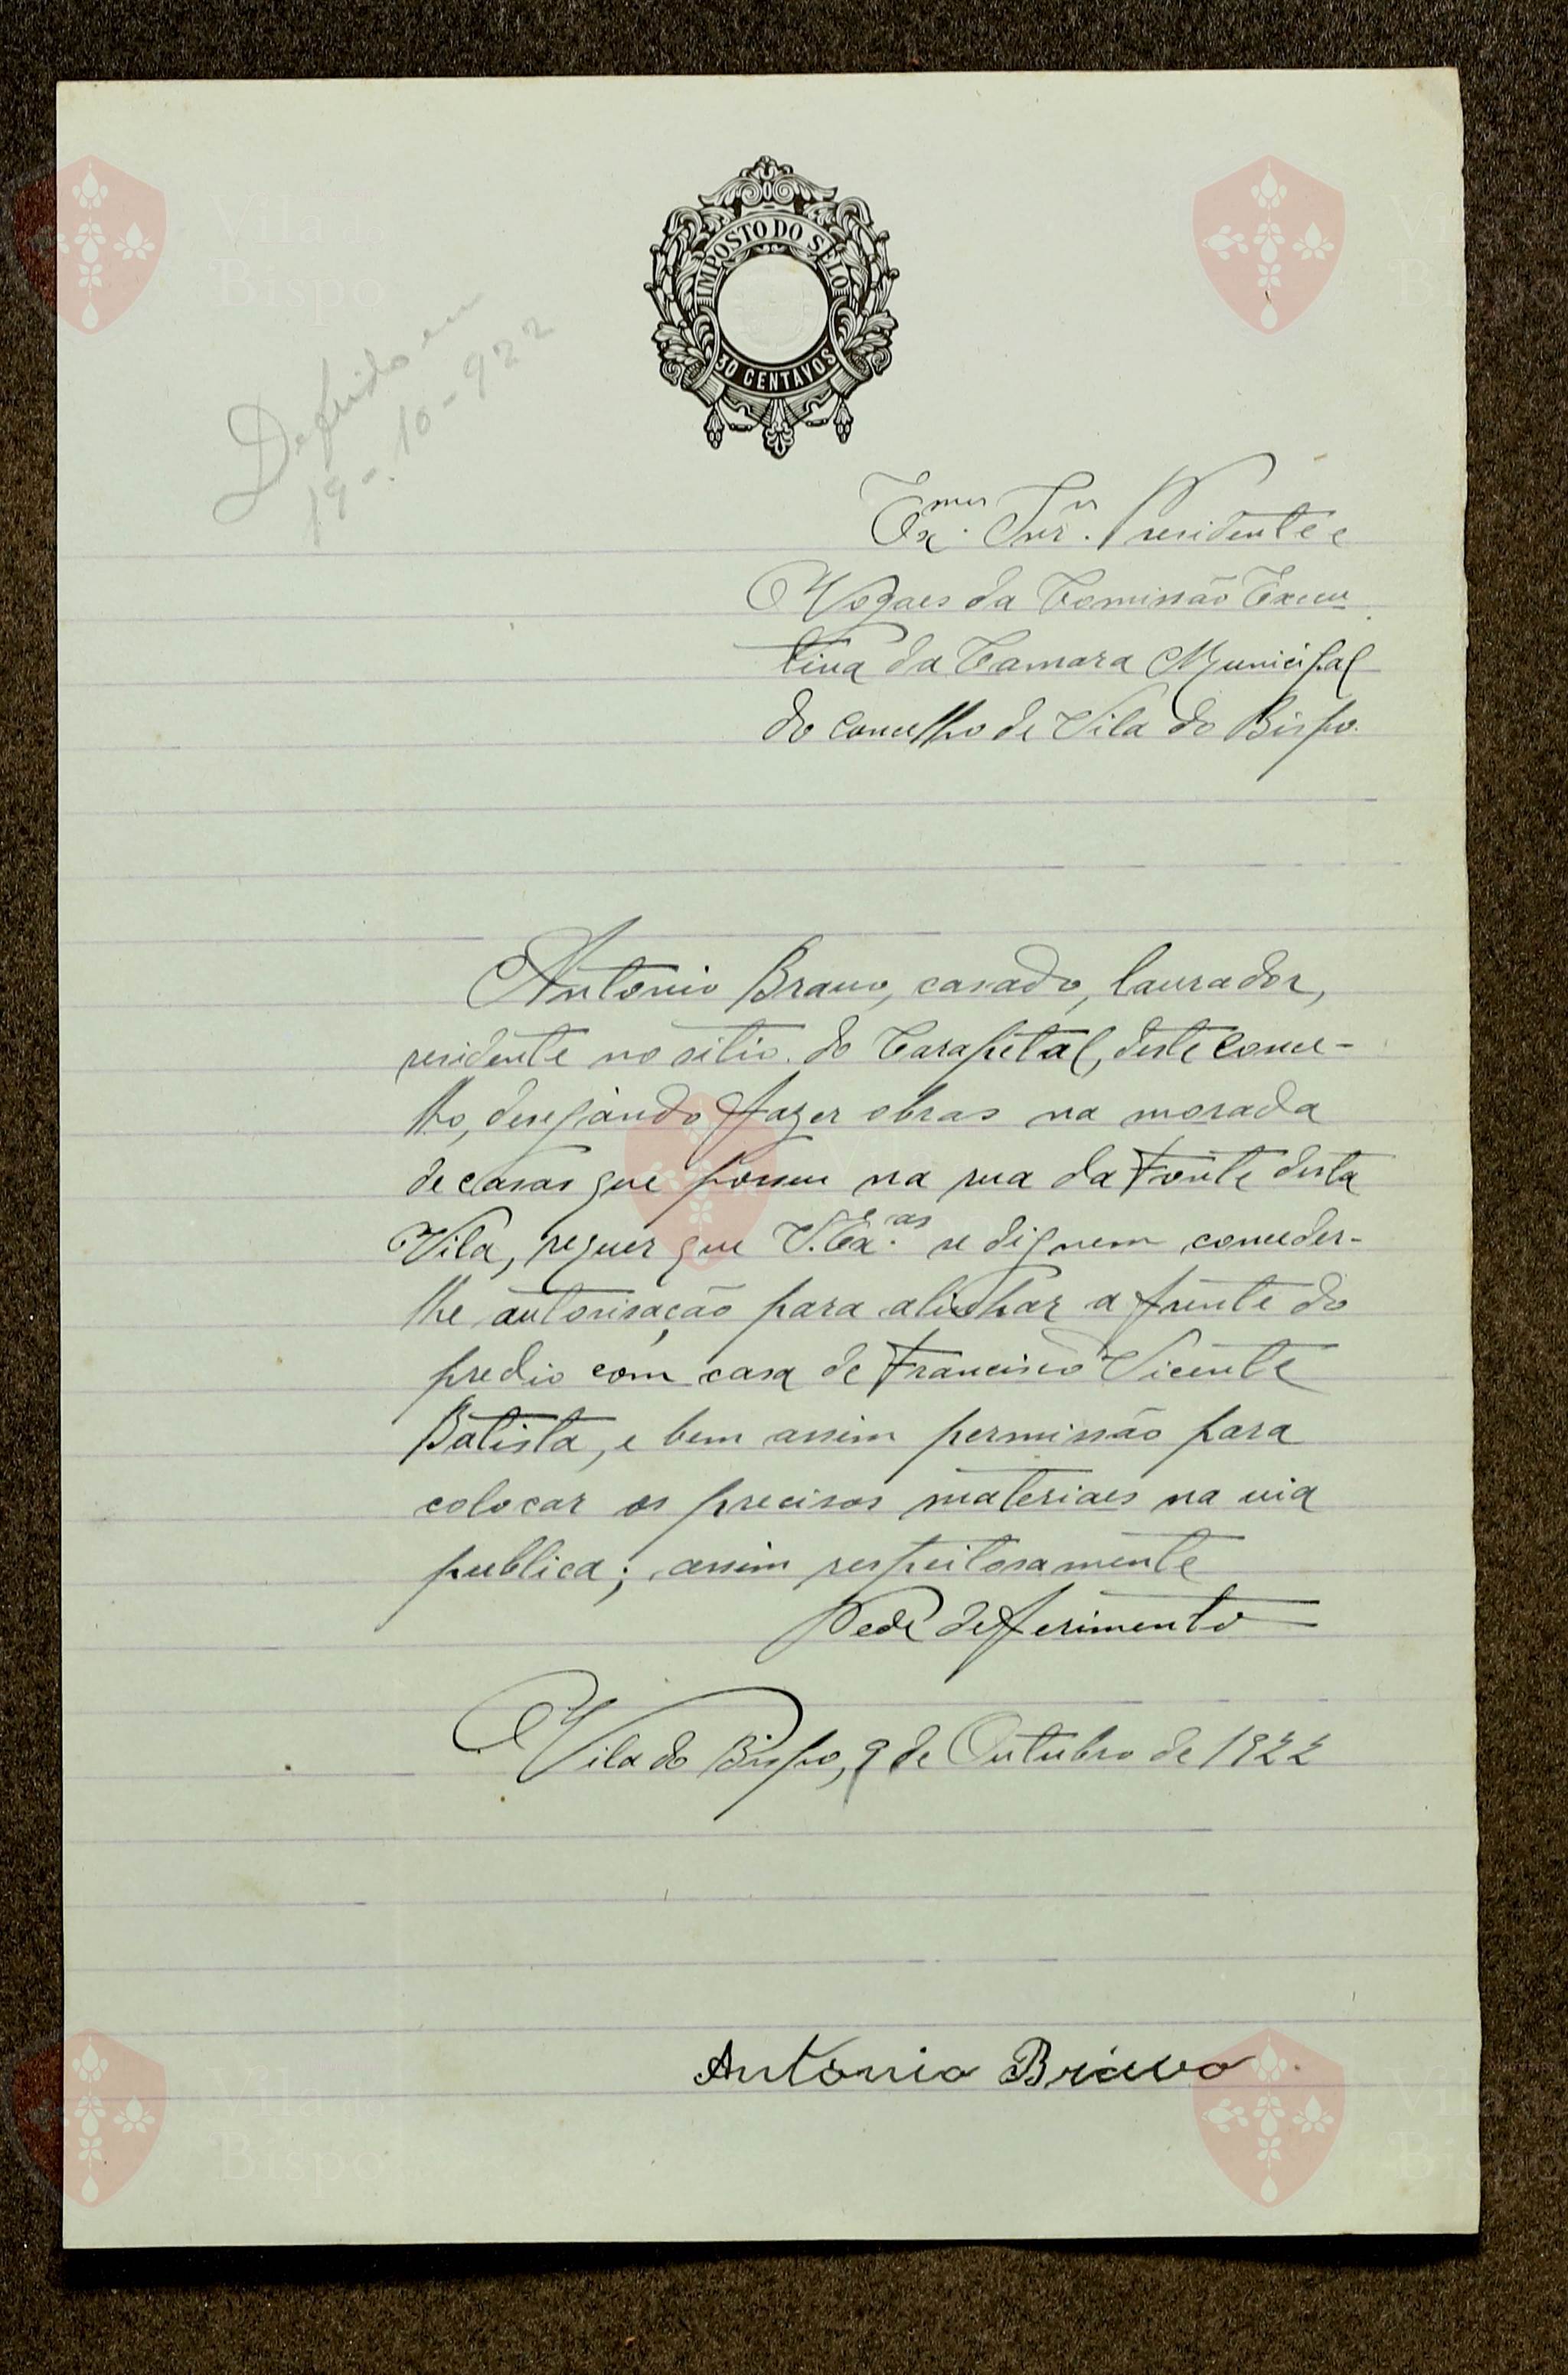 IMPOSTO DO SELO
30 CENTAVOS
Deferido em
19-10-922
Ex.mos Snr.es Presidente e
Vogaes da Comissão Execu
tiva da Camara Municipal
do concelho de Vila do Bispo.
Antonio Bravo, casado, lavrador,
residente no sitio do Carapetal, deste conce-
lho, desejando fazer obras na morada
de casas que possue na rua da Fonte desta
Vila, requer que V. Ex.as se dignem conceder-
lhe autorisação para alinhar a frente do
predio com casa de Francisco Vicente
Batista, e bem assim permissão para
colocar os precisos materiaes na via
publica; assim respeitosamente
Pede deferimento
Vila do Bispo, 9 de Outubro de 1922
Antonio Bravo
Vila
Bispo
Vila
Bispo